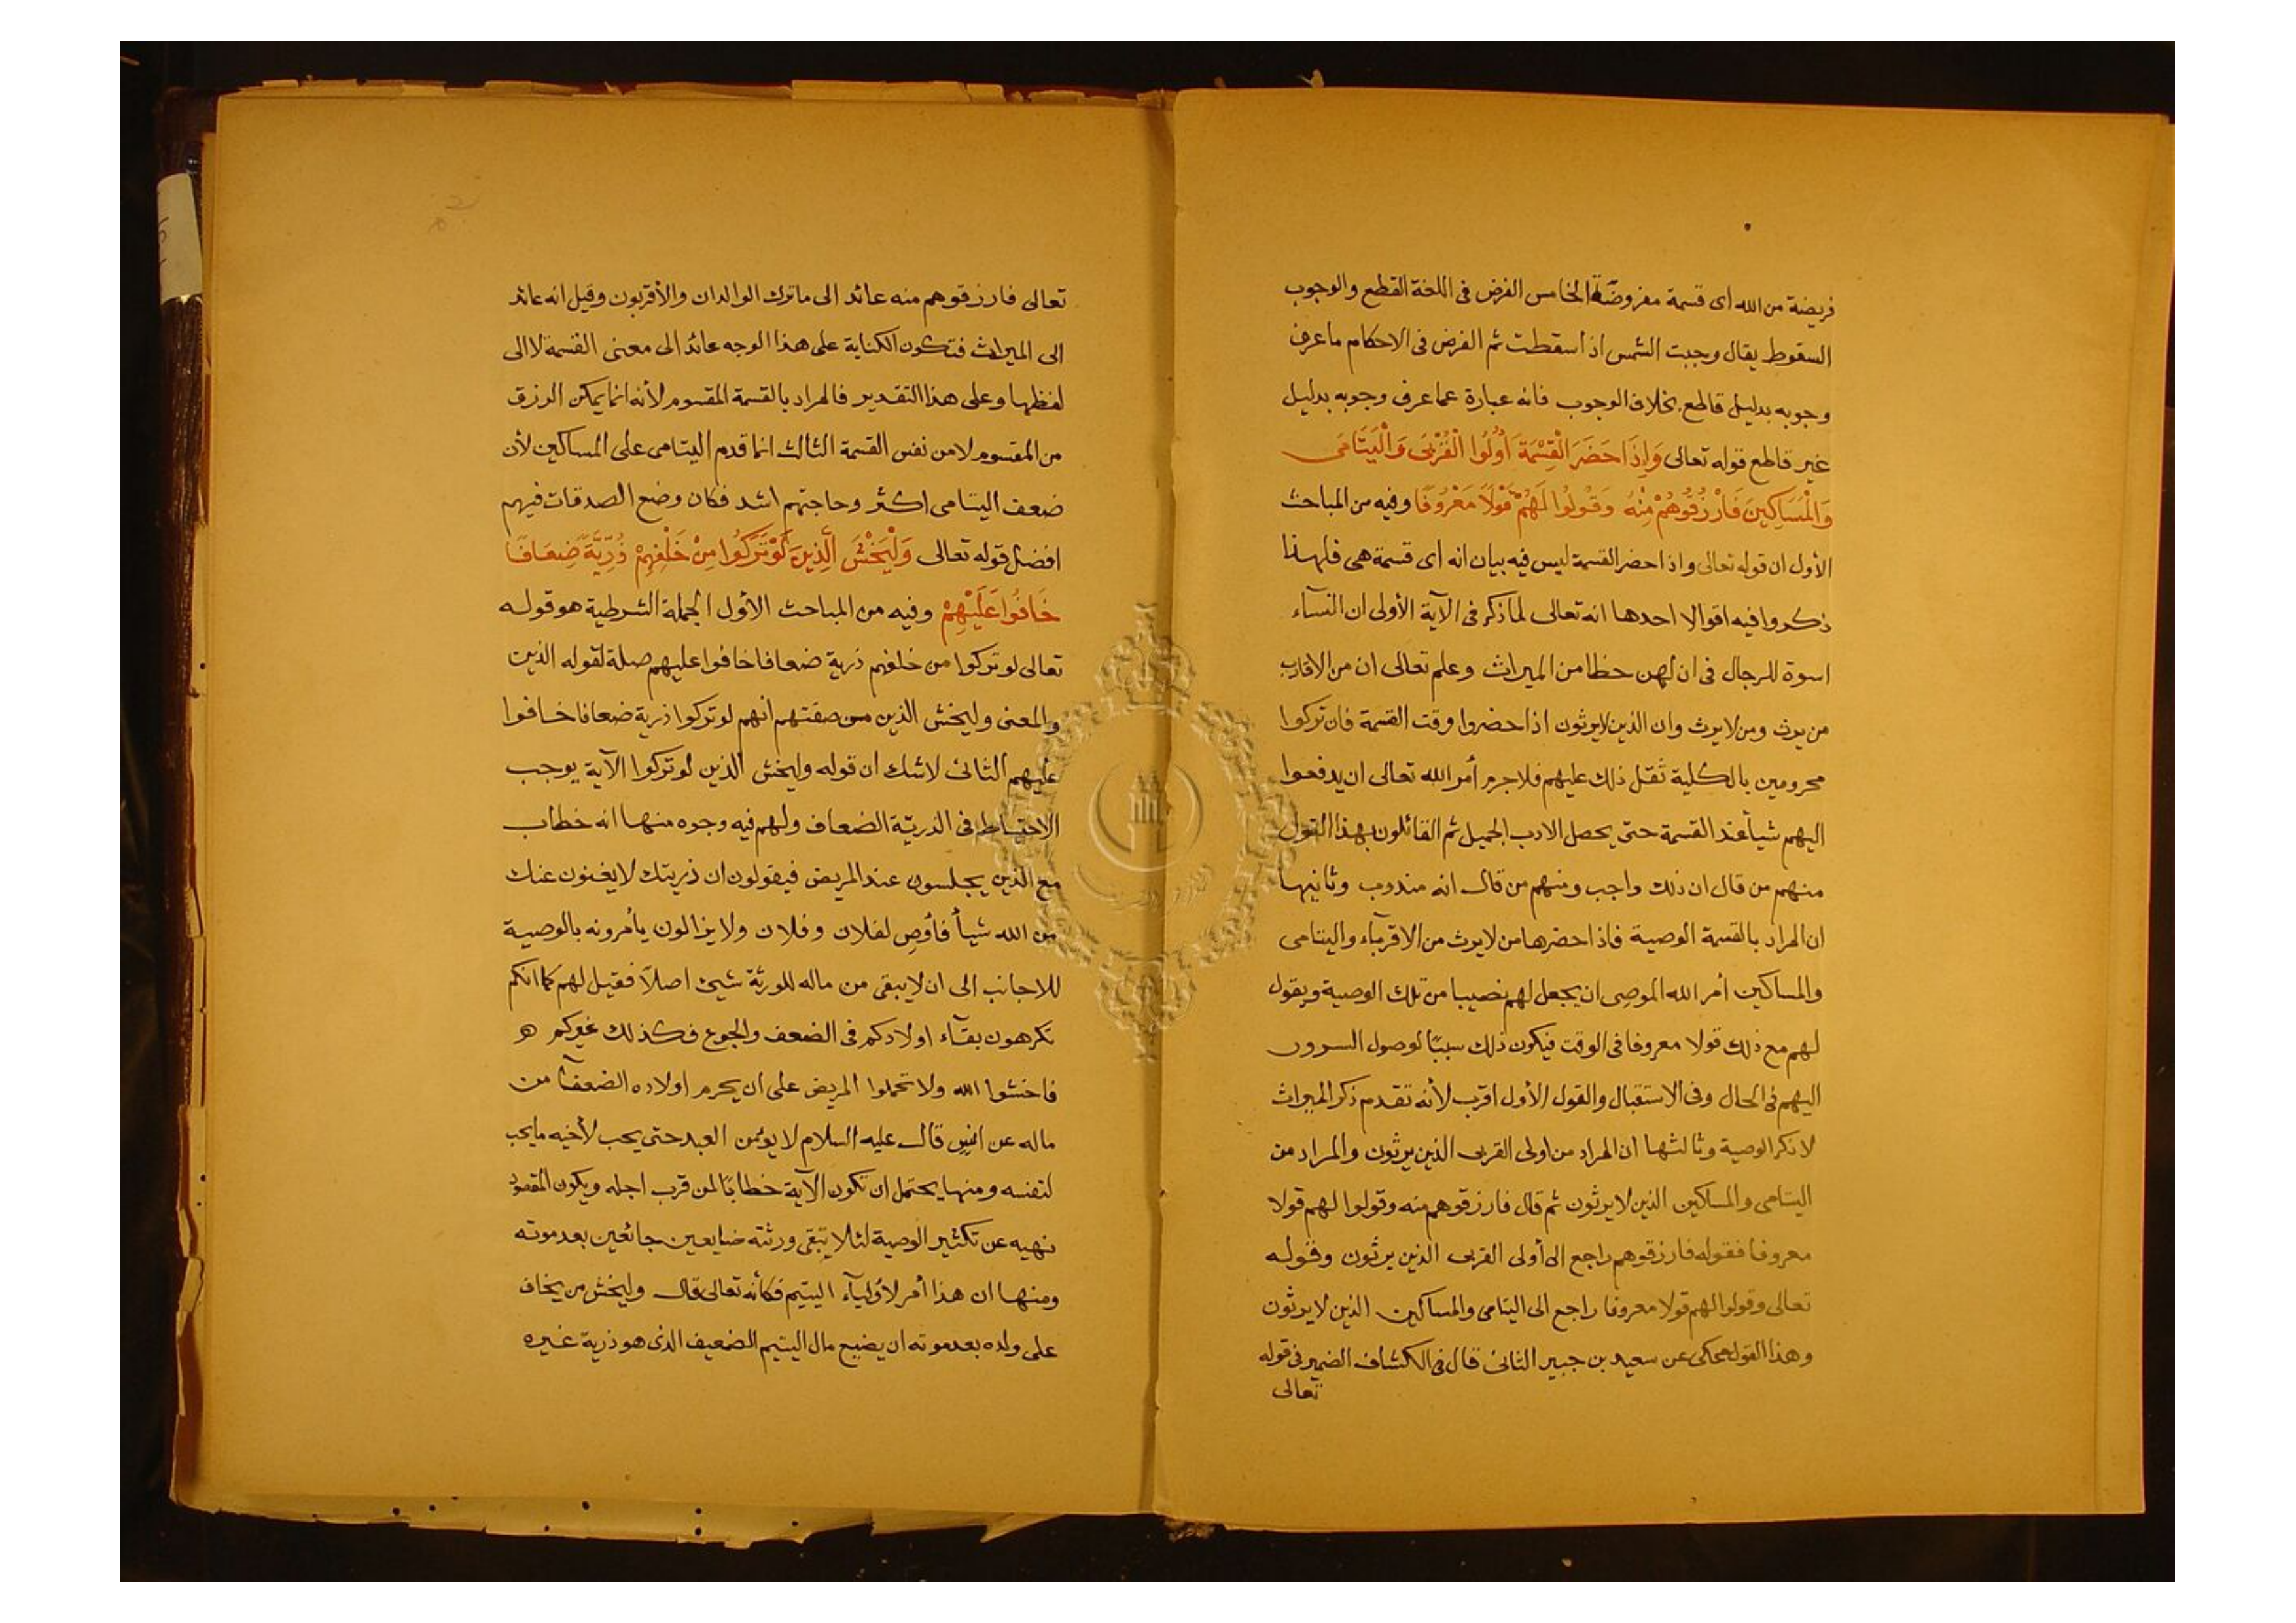 فريضة من الله اى قسمة مفروضة الخامس الفرض فى اللغة القطع والوجوب
السقوط يقال وجبت الشمس اذا سقطت ثم الفرض فى الاحكام ماعرف
وجوبه بدليل قاطع بخلاف الوجوب فانه عبارة عما عرف وجوبه بدليل
غير قاطع قوله تعالى وَإِذَا حَضَرَ الْقِسْمَةَ أُولُوا الْقُرْبَى وَالْيَتَامَى
وَالْمَسَاكِينَ فَارْزُقُوهُمْ مِنْهُ وَقُولُوا لَهُمْ قَوْلًا مَعْرُوفًا وفيه من المباحث
الأول ان قوله تعالى واذا حضر القسمة ليس فيه بيان انه اى قسمة هى فلهذا
ذكروا فيه اقوالا احدها انه تعالى لما ذكر فى الآية الأولى ان النسآء
اسوة للرجال فى ان لهن حظا من الميراث وعلم تعالى ان من الاقارب
من يرث ومن لا يرث وان الذين لا يرثون اذا حضروا وقت القسمة فان تركوا
محرومين بالكلية ثقل ذلك عليهم فلا جرم أمر الله تعالى ان يدفعوا
اليهم شيأ عند القسمة حتى يحصل الادب الجميل ثم القائلون بهذا القول
منهم من قال ان ذلك واجب ومنهم من قال انه مندوب وثانيها
ان المراد بالقسمة الوصية فاذا حضرها من لا يرث من الاقربآء واليتامى
والمساكين أمر الله الموصى ان يجعل لهم نصيبا من تلك الوصية ويقول
لهم مع ذلك قولا معروفا فى الوقت فيكون ذلك سببًا لوصول السرور
اليهم فى الحال وفى الاستقبال والقول الأول اقرب لأنه تقدم ذكر الميراث
لا ذكر الوصية وثالثها ان المراد من اولى القربى الذين يرثون والمراد من
اليتامى والمساكين الذين لا يرثون ثم قال فارزقوهم منه وقولوا لهم قولا
معروفا فقوله فارزقوهم راجع الى أولى القربى الذين يرثون وقوله
تعالى وقولوا لهم قولا معروفا راجع الى اليتامى والمساكين الذين لا يرثون
وهذا القول محكى عن سعيد بن جبير الثانى قال فى الكشاف الضمير فى قوله
تعالى
تعالى فارزقوهم منه عائد الى ماترك الوالدان والأقربون وقيل انه عائد
الى الميراث فتكون الكناية على هذا الوجه عائد الى معنى القسمة لا الى
لفظها وعلى هذا التقدير فالمراد بالقسمة المقسوم لأنه انما يمكن الرزق
من المقسوم لا من نفس القسمة الثالث انما قدم اليتامى على المساكين لأن
ضعف اليتامى اكثر وحاجتهم اشد فكان وضع الصدقات فيهم
افضل قوله تعالى وَلْيَخْشَ الَّذِينَ لَوْ تَرَكُوا مِنْ خَلْفِهِمْ ذُرِّيَّةً ضِعَافًا
خَافُوا عَلَيْهِمْ وفيه من المباحث الأول الجملة الشرطية هو قوله
تعالى لو تركوا من خلفهم ذرية ضعافا خافوا عليهم صلة لقوله الذين
والمعنى وليخش الذين من صفتهم أنهم لو تركوا ذرية ضعافا خافوا
عليهم الثانى لاشك ان قوله وليخش الذين لو تركوا الآية يوجب
الاحتياط فى الذريّة الضعاف ولهم فيه وجوه منها انه خطاب
مع الذين يجلسون عند المريض فيقولون ان ذريتك لا يغنون عنك
من الله شيأ فأوصِ لفلان وفلان ولا يزالون يأمرونه بالوصية
للاجانب الى ان لا يبقى من ماله للورثة شيئ اصلاً فقيل لهم كما انكم
تكرهون بقآء اولادكم فى الضعف والجوع فكذلك غيركم
فاخشوا الله ولا تحملوا المريض على ان يحرم اولاده الضعفآ من
ماله عن انس قال عليه السلام لا يؤمن العبد حتى يحب لأخيه مايحب
لنفسه ومنها يحتمل ان تكون الآية خطابًا لمن قرب اجله ويكون المقصود
نهيه عن تكثير الوصية لئلا تبقى ورثته ضايعين جائعين بعد موته
ومنها ان هذا أمر لأوليآء اليتيم فكأنه تعالى قال وليخش من يخاف
على ولده بعد موته ان يضيع مال اليتيم الضعيف الذى هو ذرية غيره